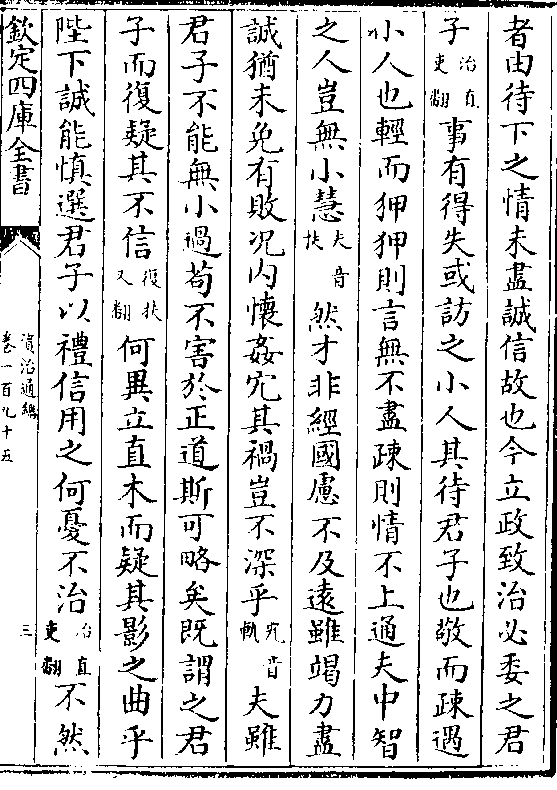 者由待下之情未盡誠信故也今立政致治必委之君
子治直吏翻事有得失或訪之小人其待君子也敬而疎遇
小人也輕而狎狎則言無不盡疎則情不上通夫中智
之人豈無小慧夫音扶然才非經國慮不及遠雖竭力盡
誠猶未免有敗况内懷姦宄其禍豈不深乎宄音軌夫雖
君子不能無小過苟不害於正道斯可略矣既謂之君
子而復疑其不信復扶又翻何異立直木而疑其影之曲乎
陛下誠能慎選君子以禮信用之何憂不治治直吏翻不然
欽定四庫全書
資治通鑑
卷一百九十五
三